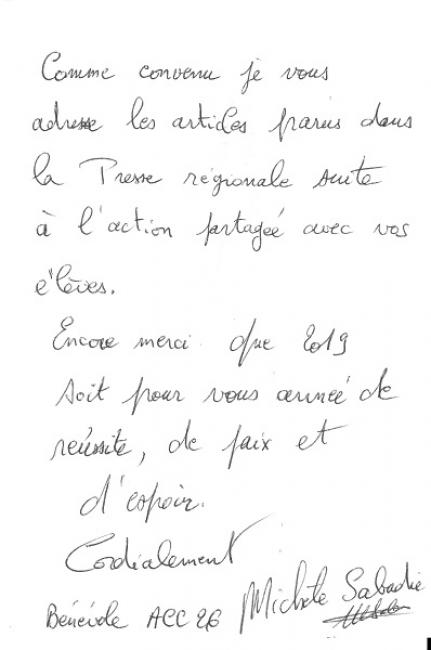 Comme convenu je vous
adresse les articles parus dans
la Presse régionale suite
à l'action partagée avec vos
élèves.
Encore merci que 2019
soit pour vous année de
réussite, de paix et
d'espoir.
Cordialement
Michèle Sabadie
Bénévole ACC 26